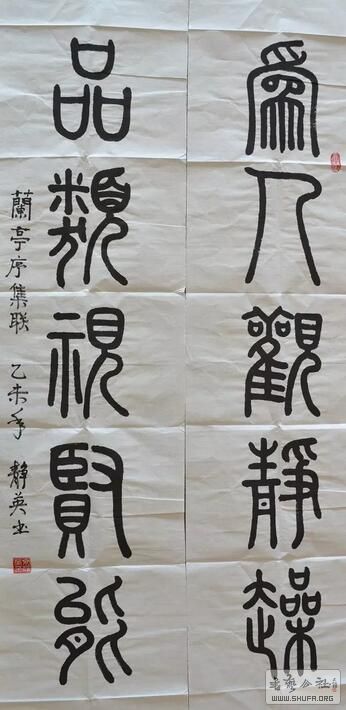 為人觀靜趮
品類視賢能
蘭亭序集联 乙未年 靜英书
WWW.SHUFA.ORG